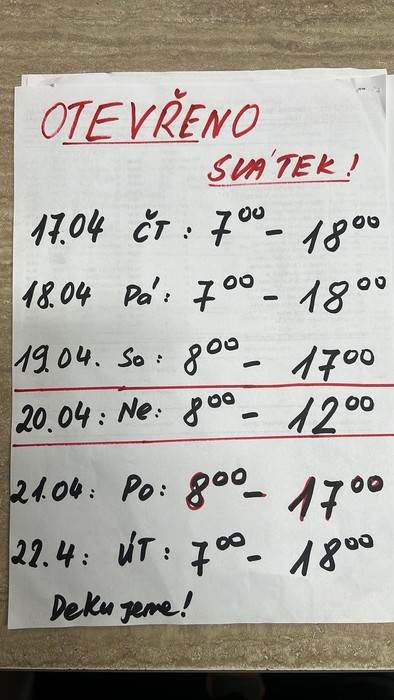 OTEVŘENO
SVÁTEK!
17.04 ČT: 7⁰⁰ - 18⁰⁰
18.04 Pá: 7⁰⁰ - 18⁰⁰
19.04. So: 8⁰⁰ - 17⁰⁰
20.04: Ne: 8⁰⁰ - 12⁰⁰
21.04: Po: 8⁰⁰ - 17⁰⁰
22.4: ÚT: 7⁰⁰ - 18⁰⁰
Dekujeme!